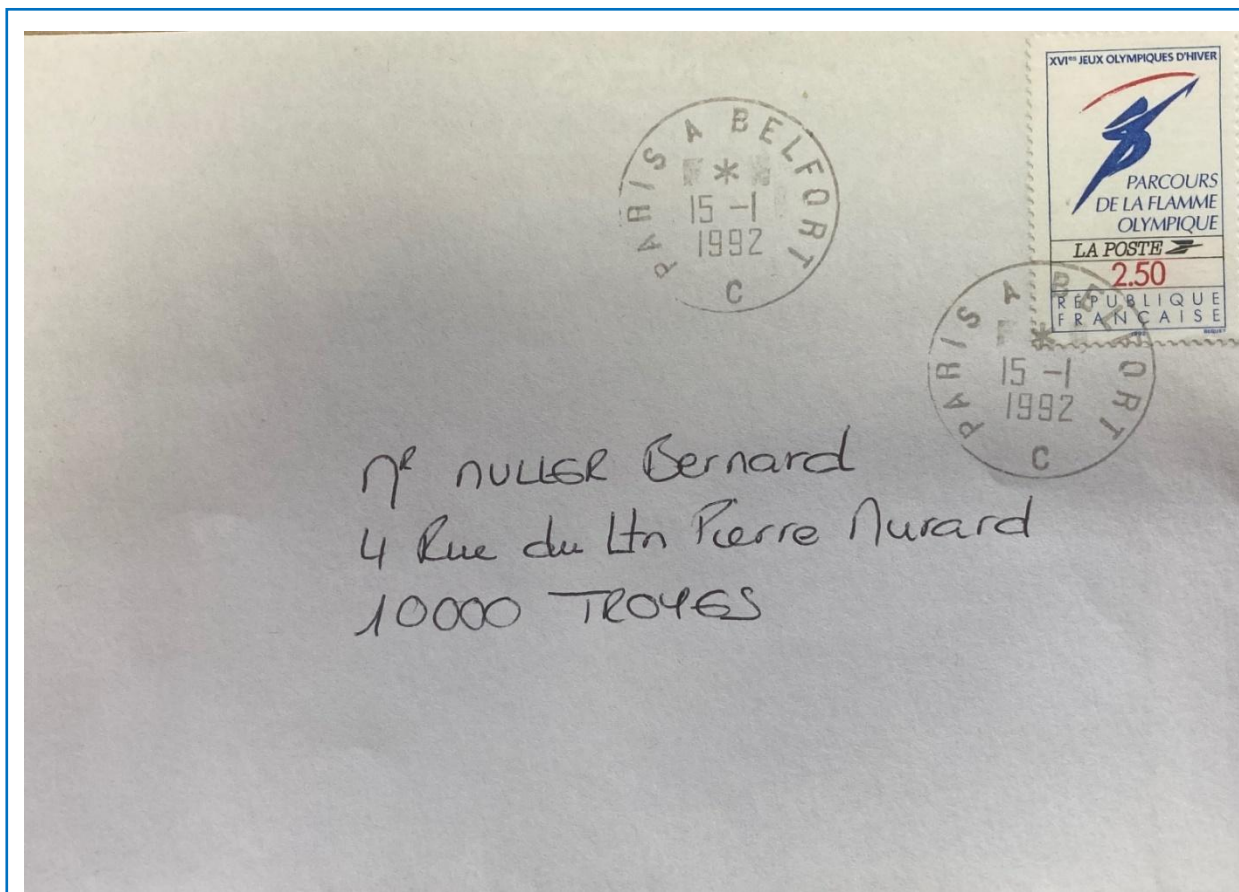 PARIS A BELFORT
*
15 -1
1992
C
XVIes JEUX OLYMPIQUES D'HIVER
PARCOURS
DE LA FLAMME
OLYMPIQUE
LA POSTE
2.50
RÉPUBLIQUE
FRANÇAISE
PARIS A BELFORT
*
15 -1
1992
C
Mr MULLER Bernard
4 Rue du Ltn Pierre Murard
10000 TROYES